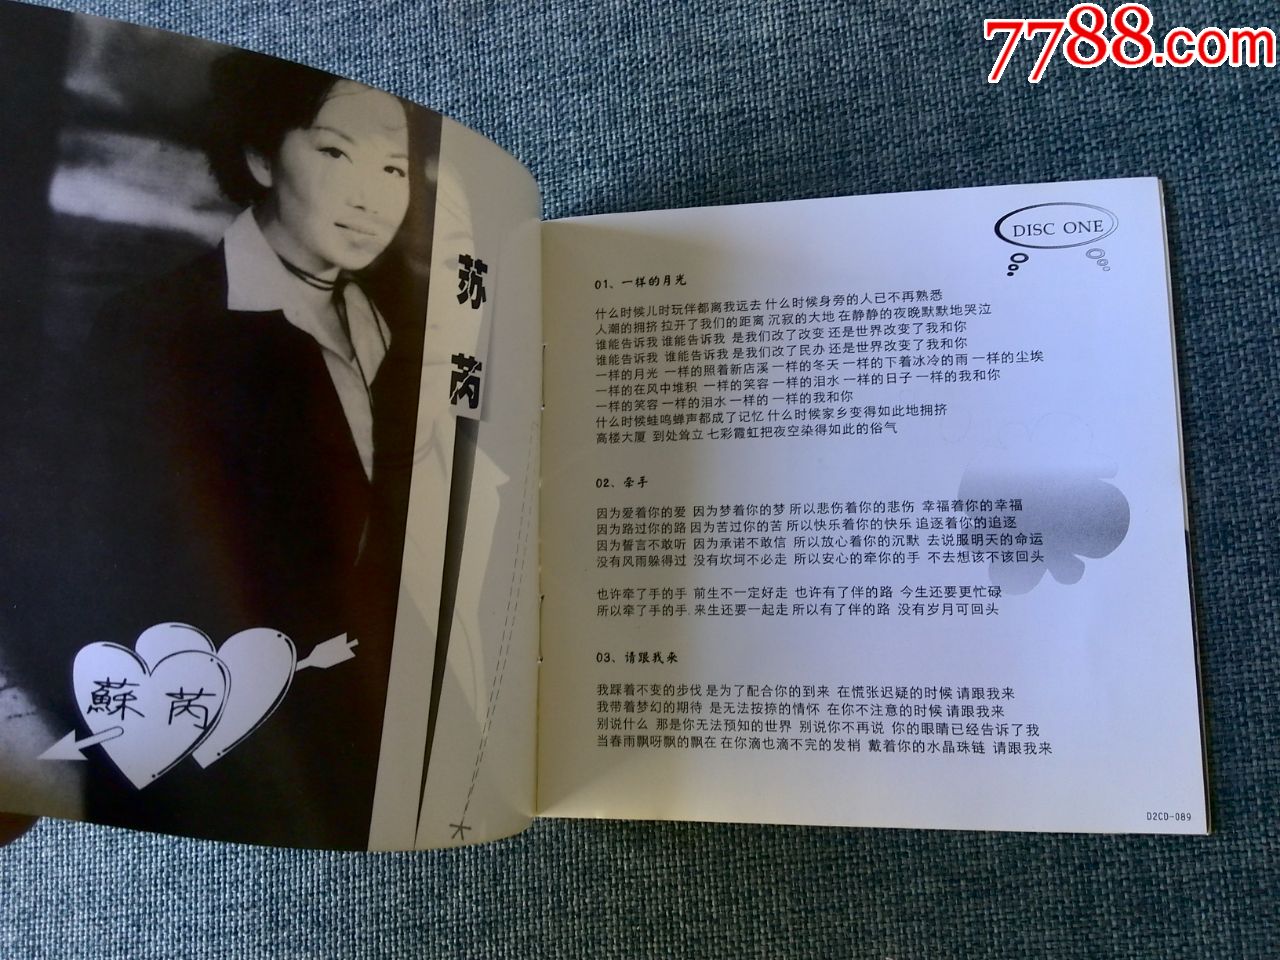 7788.com
苏
芮
蘇 芮
DISC ONE
01、一样的月光
什么时候儿时玩伴都离我远去 什么时候身旁的人已不再熟悉
人潮的拥挤 拉开了我们的距离 沉寂的大地 在静静的夜晚默默地哭泣
谁能告诉我 谁能告诉我 是我们改了改变 还是世界改变了我和你
谁能告诉我 谁能告诉我 是我们改了民办 还是世界改变了我和你
一样的月光 一样的照着新店溪 一样的冬天 一样的下着冰冷的雨 一样的尘埃
一样的在风中堆积 一样的笑容 一样的泪水 一样的日子 一样的我和你
一样的笑容 一样的泪水 一样的 一样的我和你
什么时候蛙鸣蝉声都成了记忆 什么时候家乡变得如此地拥挤
高楼大厦 到处耸立 七彩霞虹把夜空染得如此的俗气
02、牵手
因为爱着你的爱 因为梦着你的梦 所以悲伤着你的悲伤 幸福着你的幸福
因为路过你的路 因为苦过你的苦 所以快乐着你的快乐 追逐着你的追逐
因为誓言不敢听 因为承诺不敢信 所以放心着你的沉默 去说服明天的命运
没有风雨躲得过 没有坎坷不必走 所以安心的牵你的手 不去想该不该回头
也许牵了手的手 前生不一定好走 也许有了伴的路 今生还要更忙碌
所以牵了手的手 来生还要一起走 所以有了伴的路 没有岁月可回头
03、请跟我来
我踩着不变的步伐 是为了配合你的到来 在慌张迟疑的时候 请跟我来
我带着梦幻的期待 是无法按捺的情怀 在你不注意的时候 请跟我来
别说什么 那是你无法预知的世界 别说你不再说 你的眼睛已经告诉了我
当春雨飘呀飘的飘在 在你滴也滴不完的发梢 戴着你的水晶珠链 请跟我来
D2CD-089